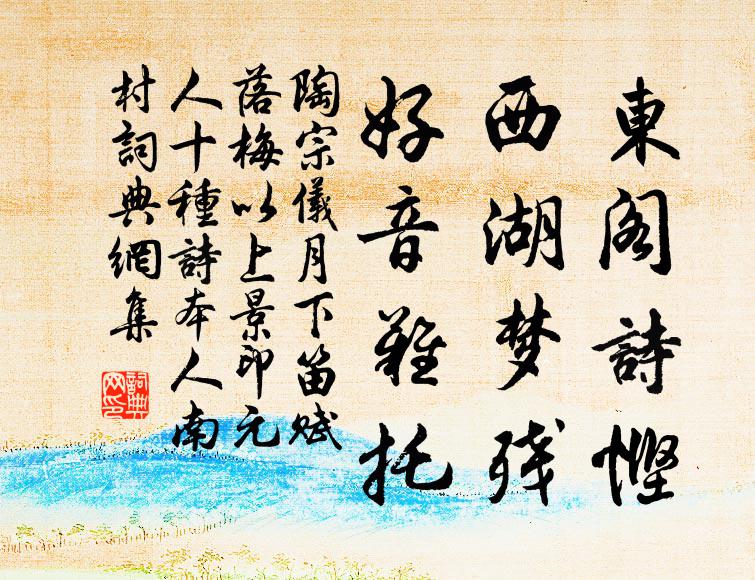 東阁詩慳
西湖梦残
好音難托
陶宗儀月下笛赋
落梅以上景印元
人十種詩本人南
村詞典網集
詞典网印